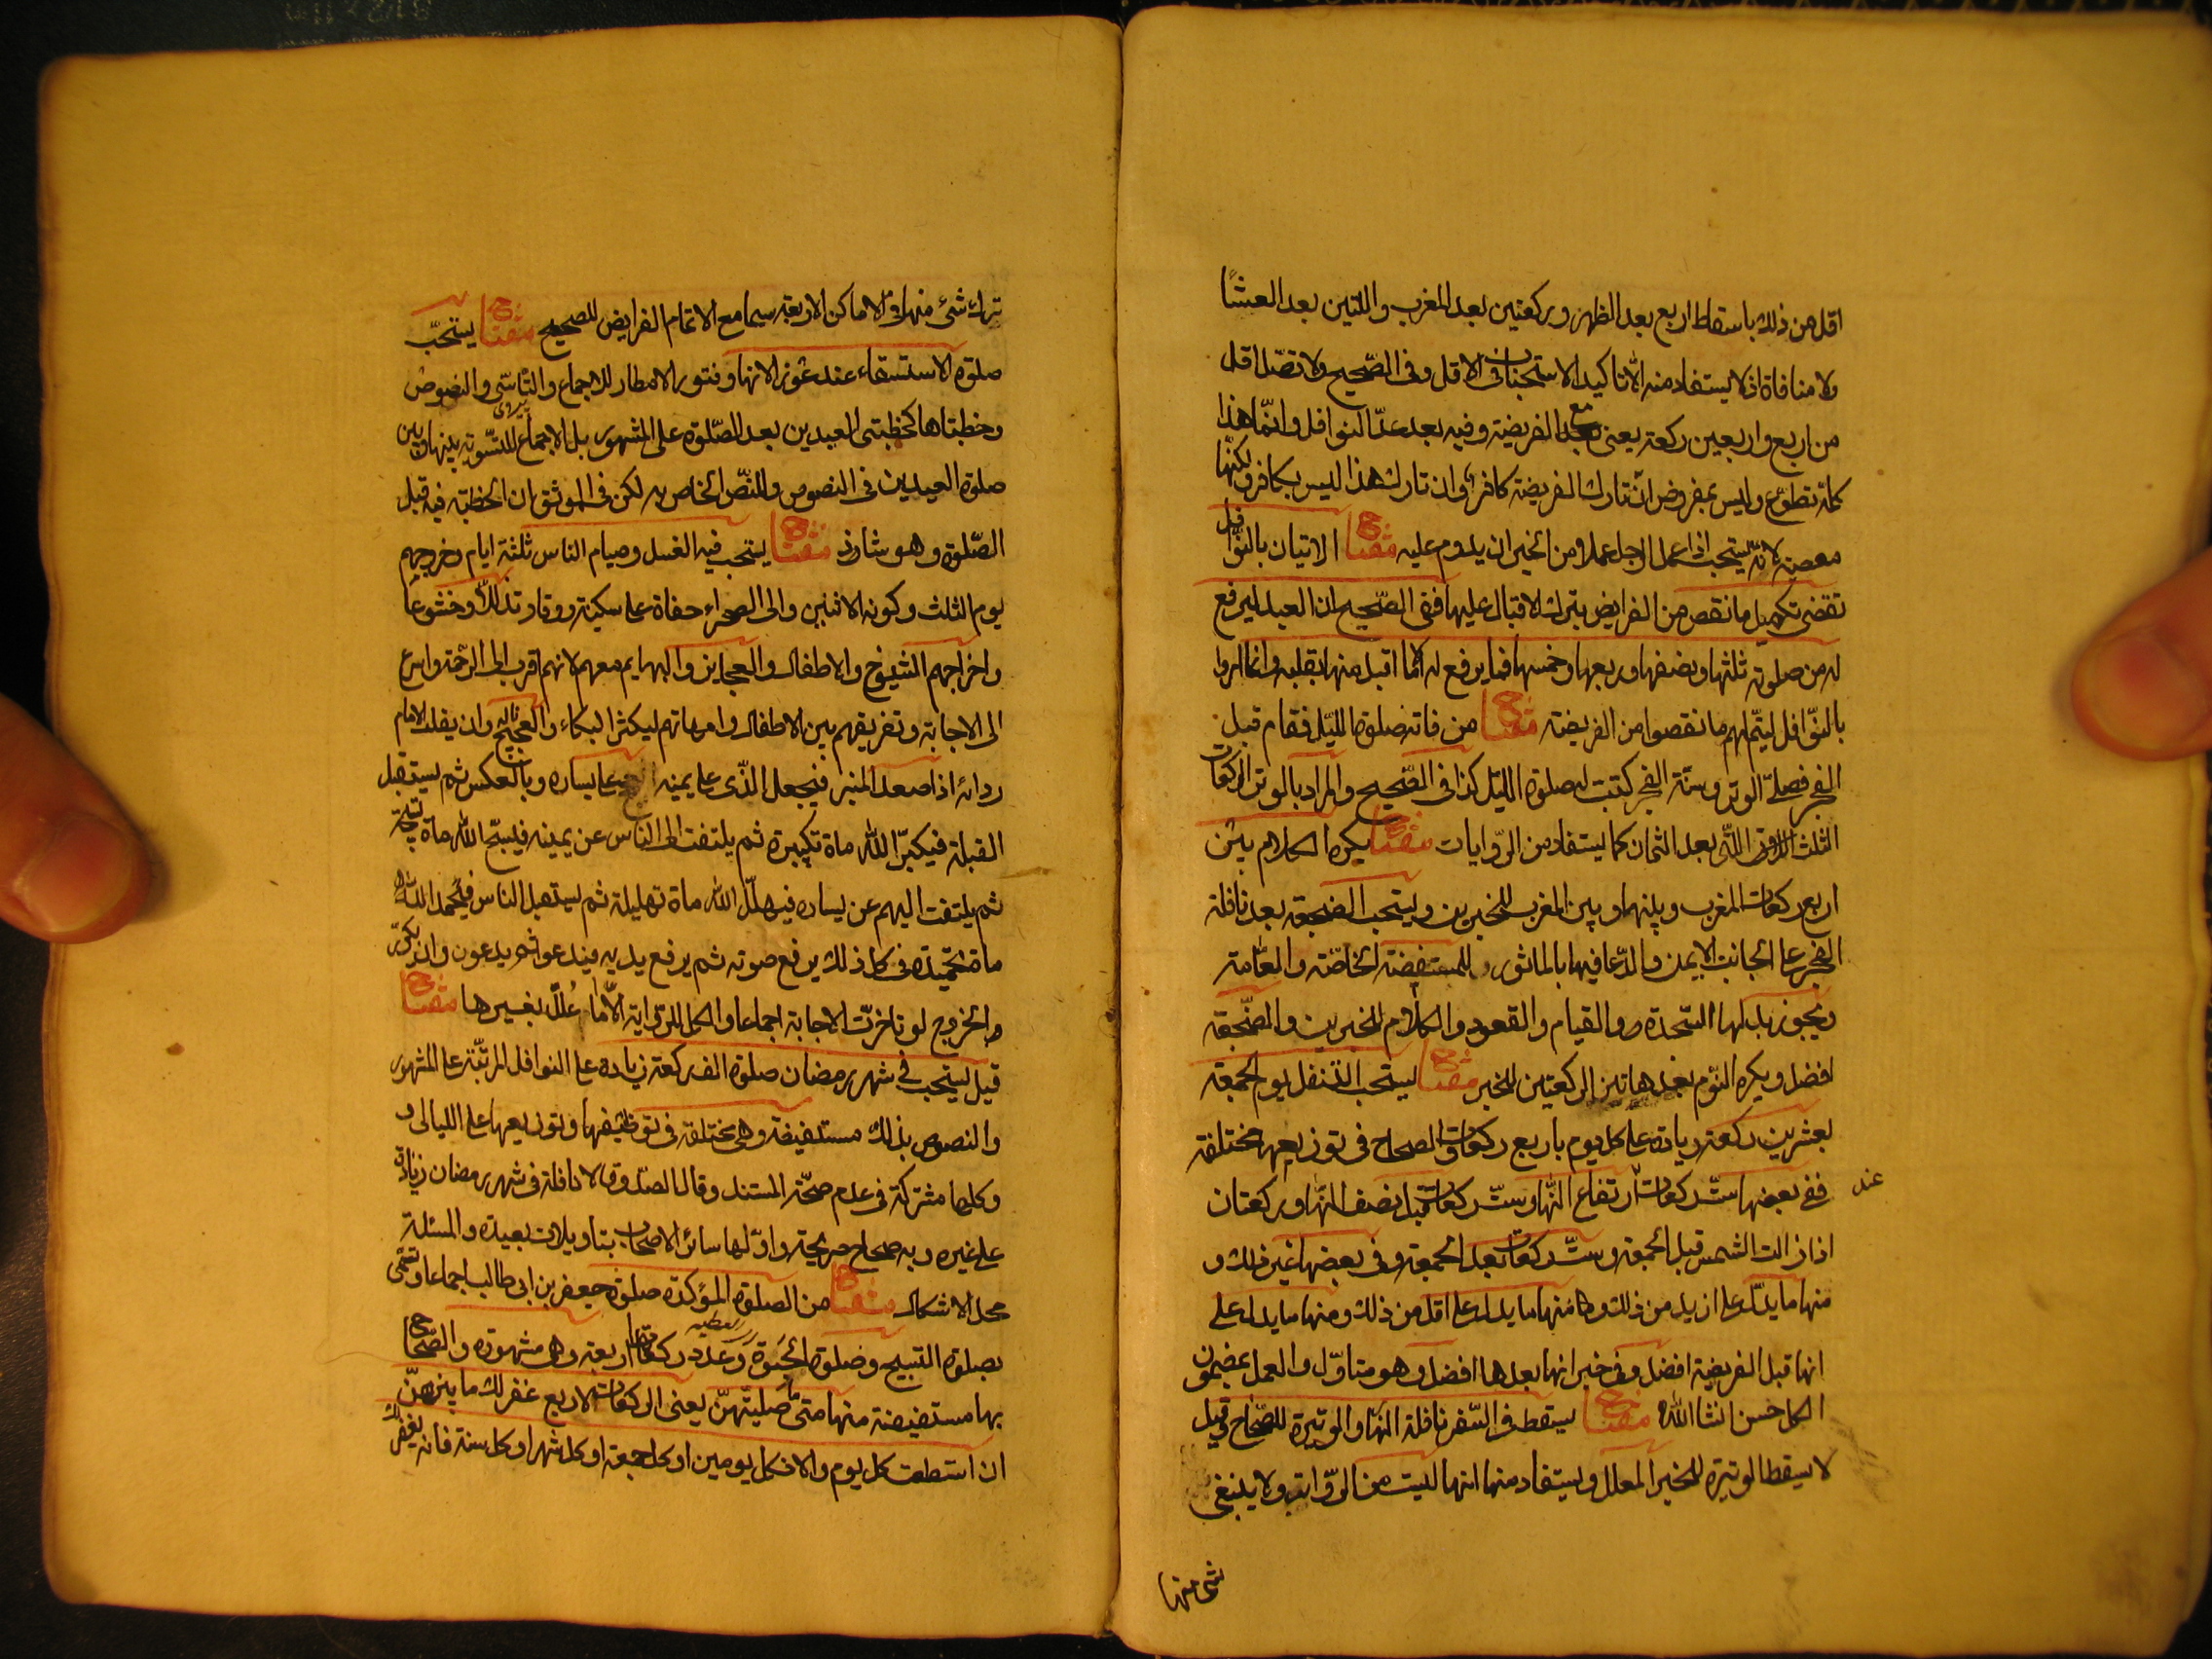 اقل من ذلك باسقاط اربع بعد الظهر وركعتين بعد المغرب واللتين بعد العشا
ولا منافاة اذ لا يستفاد منه الا تاكيد الاستحباب فى الاقل وفى الصحيح ولا تصل اقل
من اربع واربعين ركعة يعنى مع الفريضة وفيه بعد عدّ النوافل وانّما هذا
كله تطوّع وليس بمفروض انّ تارك الفريضة كافر وان تارك هذا ليس بكافر ولكنّها
معصية لانّه يستحب اذا عمل الرجل عملا من الخير ان يدوم عليه مفتاح الاتيان بالنوافل
تقضى تكميل ما نقص من الفرايض بترك الاقبال عليها ففى الصّحيح ان العبد ليرفع
له من صلوته ثلثها ونصفها وربعها وخمسها فما يرفع له الا ما اقبل منها بقلبه وانما امروا
بالنّوافل ليتمّ لهم ما نقصوا من الفريضة مفتاح من فاتته صلوة الليّل فقام قبل
الفجر فصلّى الوتر وسنّة الفجر كتبت له صلوة الليّل كذا فى الصّحيح والمراد بالوتر الركعات
الثلث اللّتى بعد الثمان كما يستفاد من الرّوايات مفتاح يكره الكلام بين
اربع ركعات المغرب وبينهما وبين المغرب للخبرين ويستحب الضجعة بعد نافلة
الفجر على الجانب الايمن والدّعا فيها بالماثور للمستفيضة الخاصّة والعامّة
ويجوز بدلها السّجدة والقيام والقعود والكلام للخبرين والضّجعة
افضل ويكره النّوم بعد هاتين الركعتين للخبر مفتاح يستحب التنفل يوم الجمعة
بعشرين ركعة زيادة على كل يوم باربع ركعات والصحاح فى توزيعها مختلفة
ففى بعضها ستّ ركعات عند ارتفاع النّهار وستّ ركعات قبل نصف النّهار وركعتان
اذا زالت الشمس قبل الجمعة وستّ ركعات بعد الجمعة وفى بعضها غير ذلك و
منها ما يدلّ على ازيد من ذلك ومنها ما يدل على اقل من ذلك ومنها ما يدل على
انها قبل الفريضة افضل وفى خبر انها بعدها افضل وهو متاوّل والعمل بمضمون
الكل حسن انشا الله مفتاح يسقط فى السّفر نافلة النّهار والوتيرة للصّحاح وقيل
لا يسقط الوتيرة للخبر المعلل ويستفاد منها انها ليست من الرّواتب ولا ينبغى
شى منها
ترك شئ منها فى الاماكن الاربعة سيما مع الاتمام الفرايض للصحيح مفتاح يستحبّ
صلوة الاستسقاء عند غور الانهار وفتور الامطار للاجماع والتّاسّى والنصوص
وخطبتاها كخطبتى العيدين بعد الصّلوة على المشهور بل الاجماع للتسّوية بينها وبين
صلوة العيدين فى النصوص وللنصّ الخاص به لكن فى الموثق ان الخطبة فيه قبل
الصّلوة وهو شاذ مفتاح يستحب فيه الغسل وصيام الناس ثلثة ايام وخروجهم
يوم الثلث وكونه الاثنين والى الصحراء حفاة على سكينة ووقار وتذللاً وخشوعاً
واخراجهم الشيوخ والاطفال والعجايز والبهايم معهم لانهم اقرب الى الرّحمة واسرع
الى الاجابة وتفريقهم بين الاطفال وامهاتهم ليكثر البكاء والعجيج وان يقلب الامام
ردائه اذا صعد المنبر فيجعل الذّى على يمينه على يساره وبالعكس ثم يستقبل
القبلة فيكبرّ الله ماة تكبيرة ثم يلتفت الى الناس عن يمينه فيسبّح الله ماة تسبيحة
ثم يلتفت اليهم عن يساره فيهلّل الله ماة تهليلة ثم يستقبل الناس فيحمد الله
ماة تحميدة فى كل ذلك يرفع صوته ثم يرفع يديه فيدعو ثم يدعون وان يكرّر
الخروج لو تاخرّت الاجابة اجماعا والكل للرّواية الّا ما عُلّل بغيرها مفتاح
قيل يستحب فى شهر رمضان صلوة الف ركعة زيادة على النوافل المرتّبة على المشهور
والنصوص بذلك مستفيضة وهى مختلفة فى توظيفها وتوزيعها على الليالى و
وكلها مشتركة فى عدم صحّة المستند وقال الصدّوق لا نافلة فى شهر رمضان زيادة
على غيره وبه صحاح صريحة واوّلها سائر الاصحاب بتاويلات بعيدة والمسئلة
محل الاشكال مفتاح من الصلوة المؤكدة صلوة جعفر بن ابى طالب اجماعا وتسمّى
بصلوة التسبيح وصلوة الحبوة وعدد ركعاتها اربعة وهى مشهورة والصّحاح
بها مستفيضة منها متى ما صلّيتهنّ يعنى الركعات الاربع غفر لك ما بينهنّ
ان استطعت كل يوم والا فكل يومين او كل جمعة او كل شهر او كل سنة فانه يغفر لك